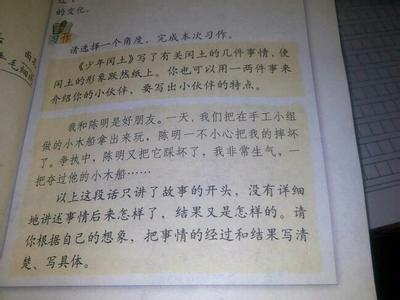 的变化。
习作
请选择一个角度，完成本次习作。
《少年闰土》写了有关闰土的几件事情，使
闰土的形象跃然纸上。你也可以用一两件事来
介绍你的小伙伴，要写出小伙伴的特点。
我和陈明是好朋友。一天，我们把在手工小组
做的小木船拿出来玩，陈明一不小心把我的摔坏
了。争执中，陈明又把它踩坏了，我非常生气，一
把夺过他的小木船……
以上这段话只讲了故事的开头，没有详细
地讲述事情后来怎样了，结果又是怎样的。请
你根据自己的想象，把事情的经过和结果写清
楚、写具体。